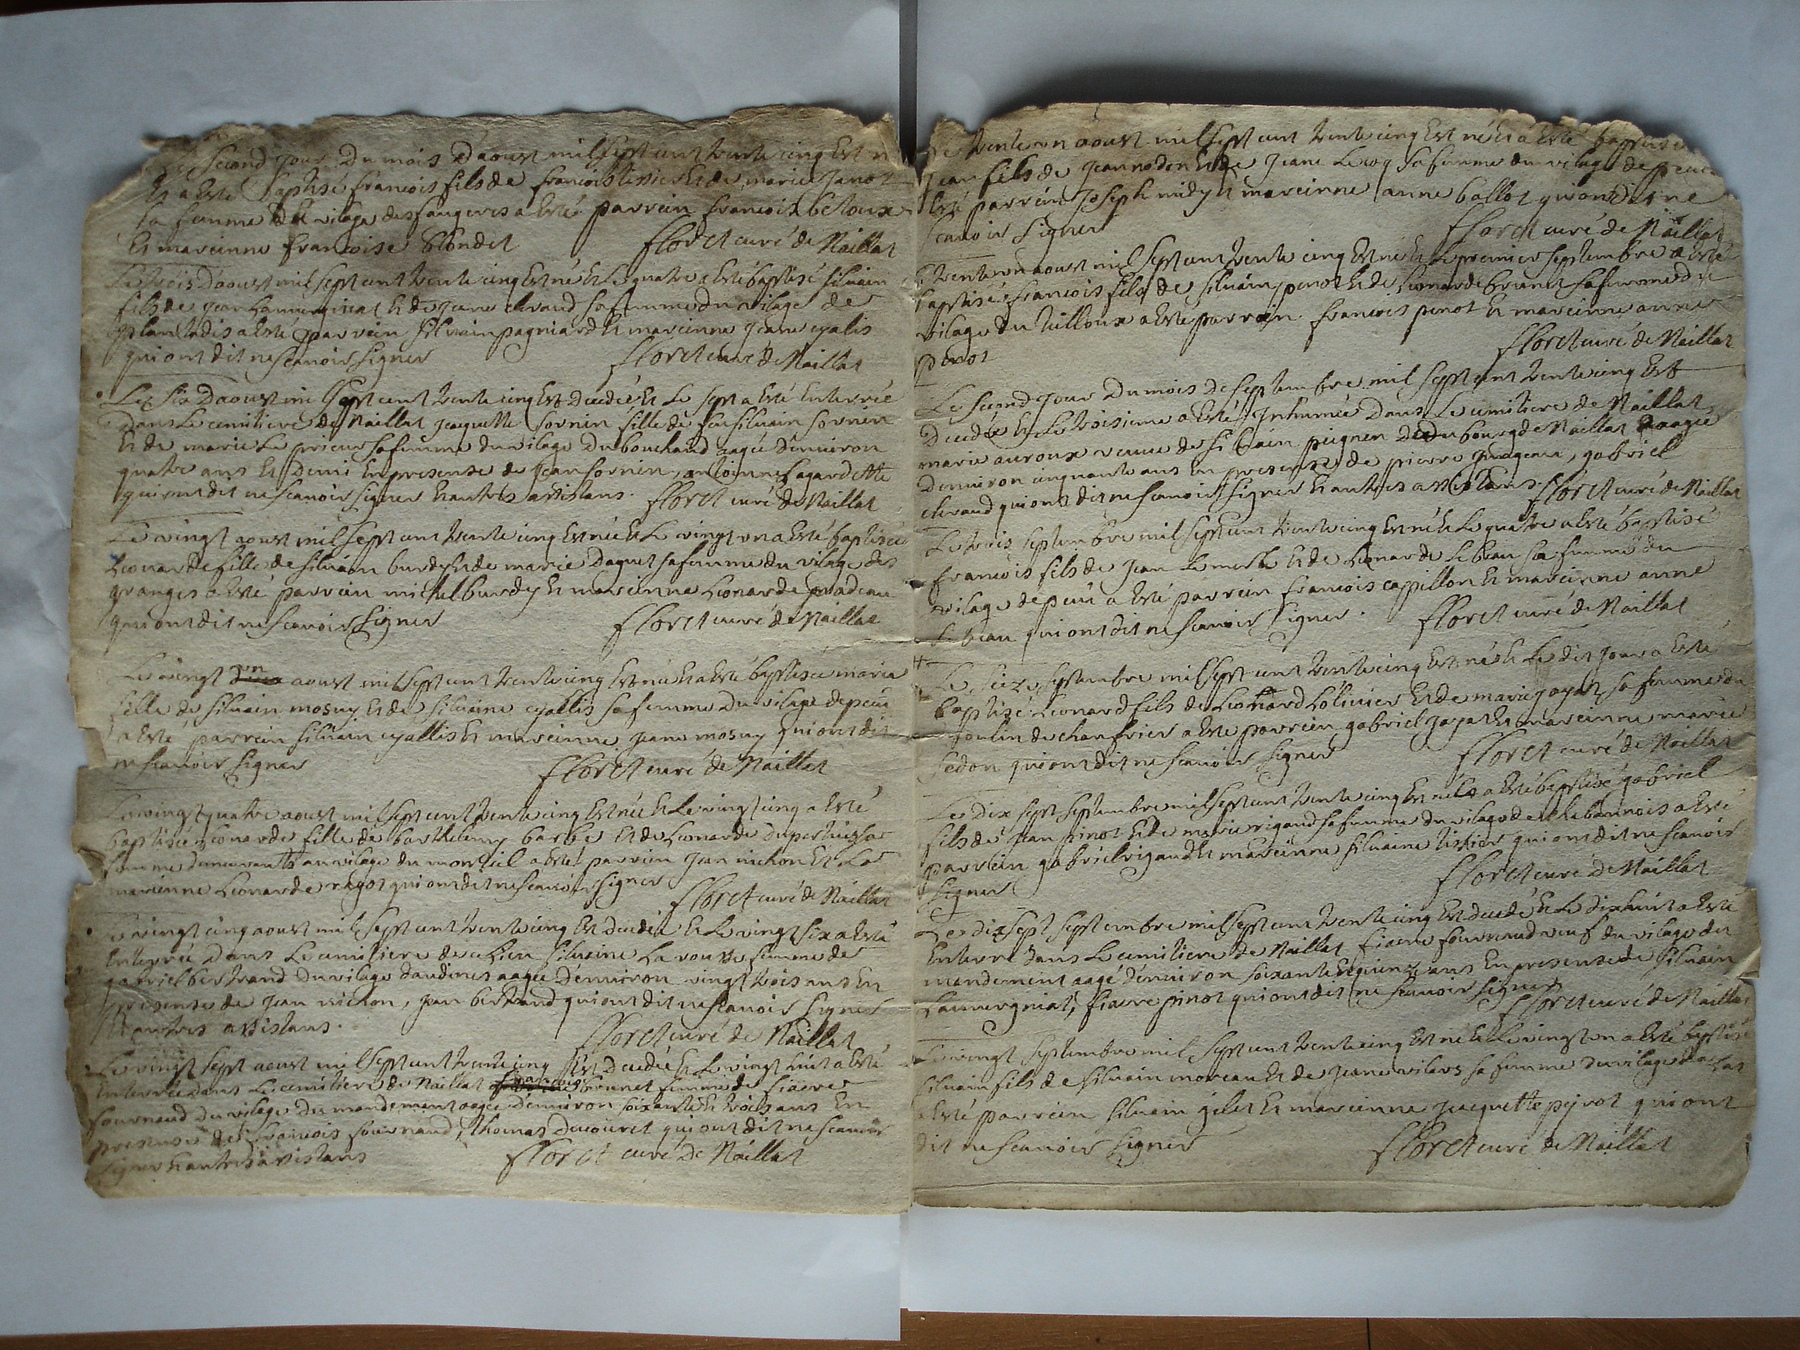 Le second jour du mois daoust mil sept cent trente cinq est n
et a esté baptisé francois fils de francois tixier et de marie Janot
sa femme du vilage des faugeres a esté parrein francois betoux
et mareinne francoise blondet floret curé de Naillat
Le trois daoust mil sept cent trente cinq est né et le quatre a esté baptisé siluain
fils de jean et de jeane sa femme du vilage de
a esté parrein siluain pagniard et mareinne jeane cyalis
qui ont dit ne scauoir signer floret curé de Naillat
Le six daoust mil sept cent trente cinq est decedée et le sept a esté enterrée
dans le cimitiere de Naillat jacquette sornin fille de feu siluain sornin
et de marie le prieur sa femme du vilage du bouchaud aagée denuiron
quatre ans et demi en presence de jean sornin, antoinne lagardette
qui ont dit ne scauoir signer et autres assistans. floret curé de Naillat
Le vingt aoust mil sept cent trente cinq est née et le vingt un a esté baptisée
Leonarde fille de siluain burdy et de marie daguet sa femme du vilage des
granges a esté parrein michel burdy et mareinne Leonarde pradeau
qui ont dit ne scauoir signer floret curé de Naillat
Le vingt un aoust mil sept cent trente cinq est née et a esté baptisée marie
fille de siluain mosny et de siluaine cyallis sa femme du vilage de peuu
a esté parrein siluain cyallis et mareinne jeane mosny qui ont dit
ne scauoir signer floret curé de Naillat
Le vingt quatre aoust mil sept cent trente cinq est née et le vingt cinq a esté
baptisée Leonarde fille de barthelemy barbe et de Leonarde dupertuis sa
femme demeurants au vilage du monteil a esté parrein jean nichon et la
mareinne Leonarde ragot qui ont dit ne scauoir signer floret curé de Naillat
Le vingt cinq aoust mil sept cent trente cinq est decedée et le vingt six a esté
enterrée dans le cimitiere de ce lieu siluaine la rousse femme de
gabriel bertrand du vilage daudines aagée denuiron vingt trois ans en
presence de jean nichon, jean bertrand qui ont dit ne scauoir signer
et autres assistans. floret curé de Naillat
Le vingt sept aoust mil sept cent trente cinq est decedée et le vingt huit a esté
enterrée dans le cimitiere de Naillat brunet femme de fiacre
fournaud du vilage du mandement aagée denuiron soixante et trois ans en
presence de francois fournaud, thomas ducouret qui ont dit ne scauoir
signer et autres assistans floret curé de Naillat
Le trente un aoust mil sept cent trente cinq est né et a esté baptisé
jean fils de jean nadon et de jeane Lecoq sa femme du vilage de peuu
esté parrein joseph midy et mareinne anne ballot qui ont dit ne
scauoir signer floret curé de Naillat
Le trente un aoust mil sept cent trente cinq est né et le premier septembre a esté
baptisé francois fils de siluain pinot et de Leonarde brunet sa femme du
vilage du tilloux a esté parrein francois pinot et mareinne anne
pinot floret curé de Naillat
Le second jour du mois de septembre mil sept cent trente cinq est
decedée et le troisieme a esté inhumée dans le cimitiere de Naillat
marie auroux veuue de siluain peignen du bourg de Naillat aagée
denuiron cinquante ans en presence de pierre, gabriel
qui ont dit ne scauoir signer et autres assistans floret curé de Naillat
Le trois septembre mil sept cent trente cinq est né et le quatre a esté baptisé
francois fils de jean le merle et de Leonarde le beau sa femme du
vilage de peuu a esté parrein francois capillon et mareinne anne
Le beau qui ont dit ne scauoir signer. floret curé de Naillat
Le septembre mil sept cent trente cinq est né et le dit jour a esté
baptisé Leonard fils de Leonard Lolivier et de marie jayat sa femme du
moulin de chanfrier a esté parrein gabriel jayat et mareinne marie
fedon qui ont dit ne scauoir signer floret curé de Naillat
Le dix sept septembre mil sept cent trente cinq est né et a esté baptisé gabriel
fils de jean pinot et de marie rigaud sa femme du vilage de chabannois a esté
parrein gabriel rigaud et mareinne siluaine tixier qui ont dit ne scauoir
signer floret curé de Naillat
Le dix sept septembre mil sept cent trente cinq est decedé et le dix huit a esté
enterré dans le cimitiere de Naillat fiacre fournaud veuf du vilage du
mandement aagé denuiron soixante et quinze ans en presence de siluain
Lauvergniat, fiacre pinot qui ont dit ne scauoir signer floret curé de Naillat
Le vingt septembre mil sept cent trente cinq est né et le vingt un a esté baptisé
siluain fils de siluain moreau et de jeane vilars sa femme du vilage
a esté parrein siluain gilet et mareinne jacquette peyrot qui ont
dit ne scauoir signer floret curé de Naillat